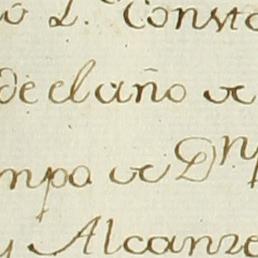 o D. Consta
de el año de
mpa de Dn
y Alcanze